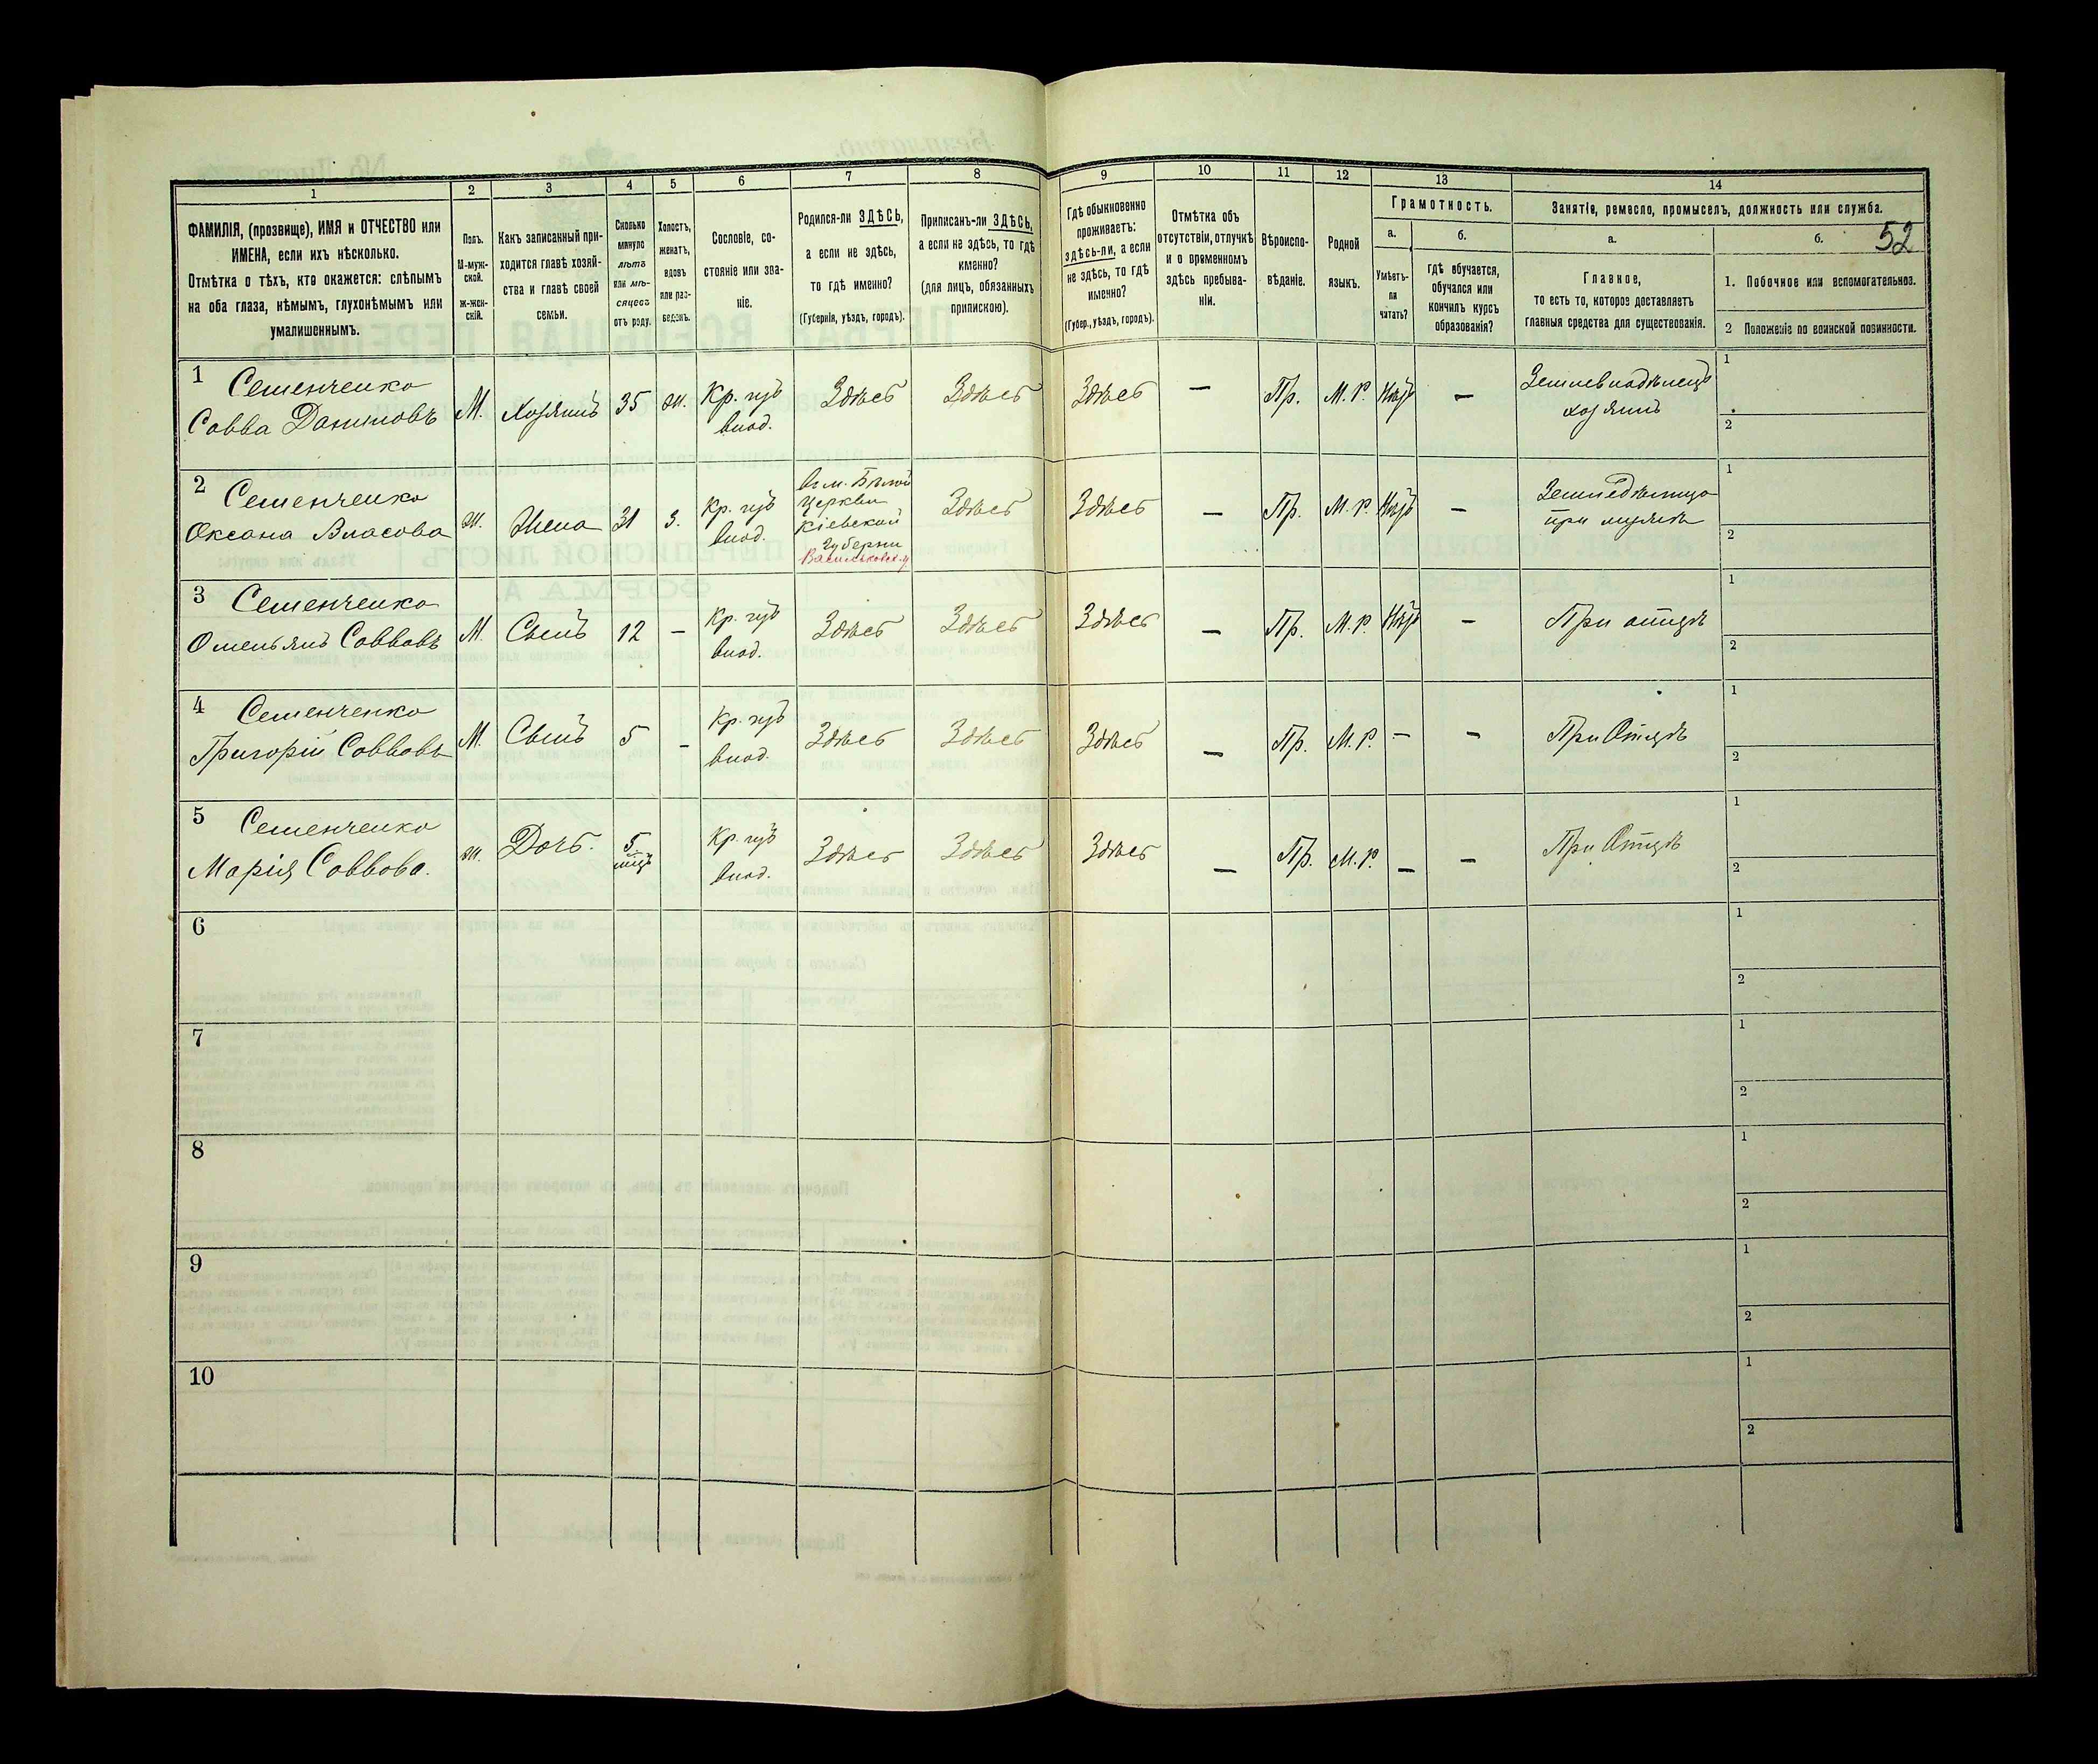 52
1 2 3 4 5 6 7 8 9 10 11 12 13 14
ФАМИЛІЯ, (прозвище), ИМЯ и ОТЧЕСТВО или
ИМЕНА, если ихъ нѣсколько.
Отмѣтка о тѣхъ, кто окажется: слѣпымъ
на оба глаза, нѣмымъ, глухонѣмымъ или
умалишеннымъ.
Полъ.
М-муж-
ской.
ж-жен-
скій.
Какъ записанный при-
ходится главѣ хозяй-
ства и главѣ своей
семьи.
Сколько
минуло
лѣтъ
или мѣ-
сяцевъ
отъ роду.
Холостъ,
женатъ,
вдовъ
или раз-
веденъ.
Сословіе, со-
стояніе или зва-
ніе.
Родился-ли ЗДѢСЬ,
а если не здѣсь,
то гдѣ именно?
(Губернія, уѣздъ, городъ).
Приписанъ-ли ЗДѢСЬ,
а если не здѣсь, то гдѣ
именно?
(для лицъ, обязанныхъ
припискою).
Гдѣ обыкновенно
проживаетъ:
здѣсь-ли, а если
не здѣсь, то гдѣ
именно?
(Губер., уѣздъ, городъ).
Отмѣтка объ
отсутствіи, отлучкѣ
и о временномъ
здѣсь пребыва-
ніи.
Вѣроиспо-
вѣданіе.
Родной
языкъ.
Грамотность.
а.
Умѣетъ-
ли
читать?
б.
гдѣ обучается,
обучался или
кончилъ курсъ
образованія?
Занятіе, ремесло, промыселъ, должность или служба.
а.
Главное,
то есть то, которое доставляетъ
главныя средства для существованія.
б.
1. Побочное или вспомогательное.
2 Положеніе по воинской повинности.
1 Семенченко
Савва Даниловъ
М.
Хозяинъ
35
ж.
Кр. изъ
влад.
Здѣсь
Здѣсь
Здѣсь
—
Пр.
М. Р.
Нѣтъ
—
Землевладѣлецъ
хозяинъ
1
2
2 Семенченко
Оксана Власова
ж.
Жена
31
З.
Кр. изъ
влад.
въ м. Бѣлой
Церкви
Кіевской
Губерніи
Васильковск. у
Здѣсь
Здѣсь
—
Пр.
М. Р.
Нѣтъ
—
при мужѣ
1
2
3 Семенченко
Омельянъ Саввовъ
М.
Сынъ
12
—
Кр. изъ
влад.
Здѣсь
Здѣсь
Здѣсь
—
Пр.
М. Р.
Нѣтъ
—
При отцѣ
1
2
4 Семенченко
Григорій Саввовъ
М.
Сынъ
5
—
Кр. изъ
влад.
Здѣсь
Здѣсь
Здѣсь
—
Пр.
М. Р.
—
—
При Отцѣ
1
2
5 Семенченко
Марія Саввова.
ж.
Дочь.
5.
мѣц.
Кр. изъ
влад.
Здѣсь
Здѣсь
Здѣсь
—
Пр.
М. Р.
—
—
При Отцѣ
1
2
6
1
2
7
1
2
8
1
2
9
1
2
10
1
2